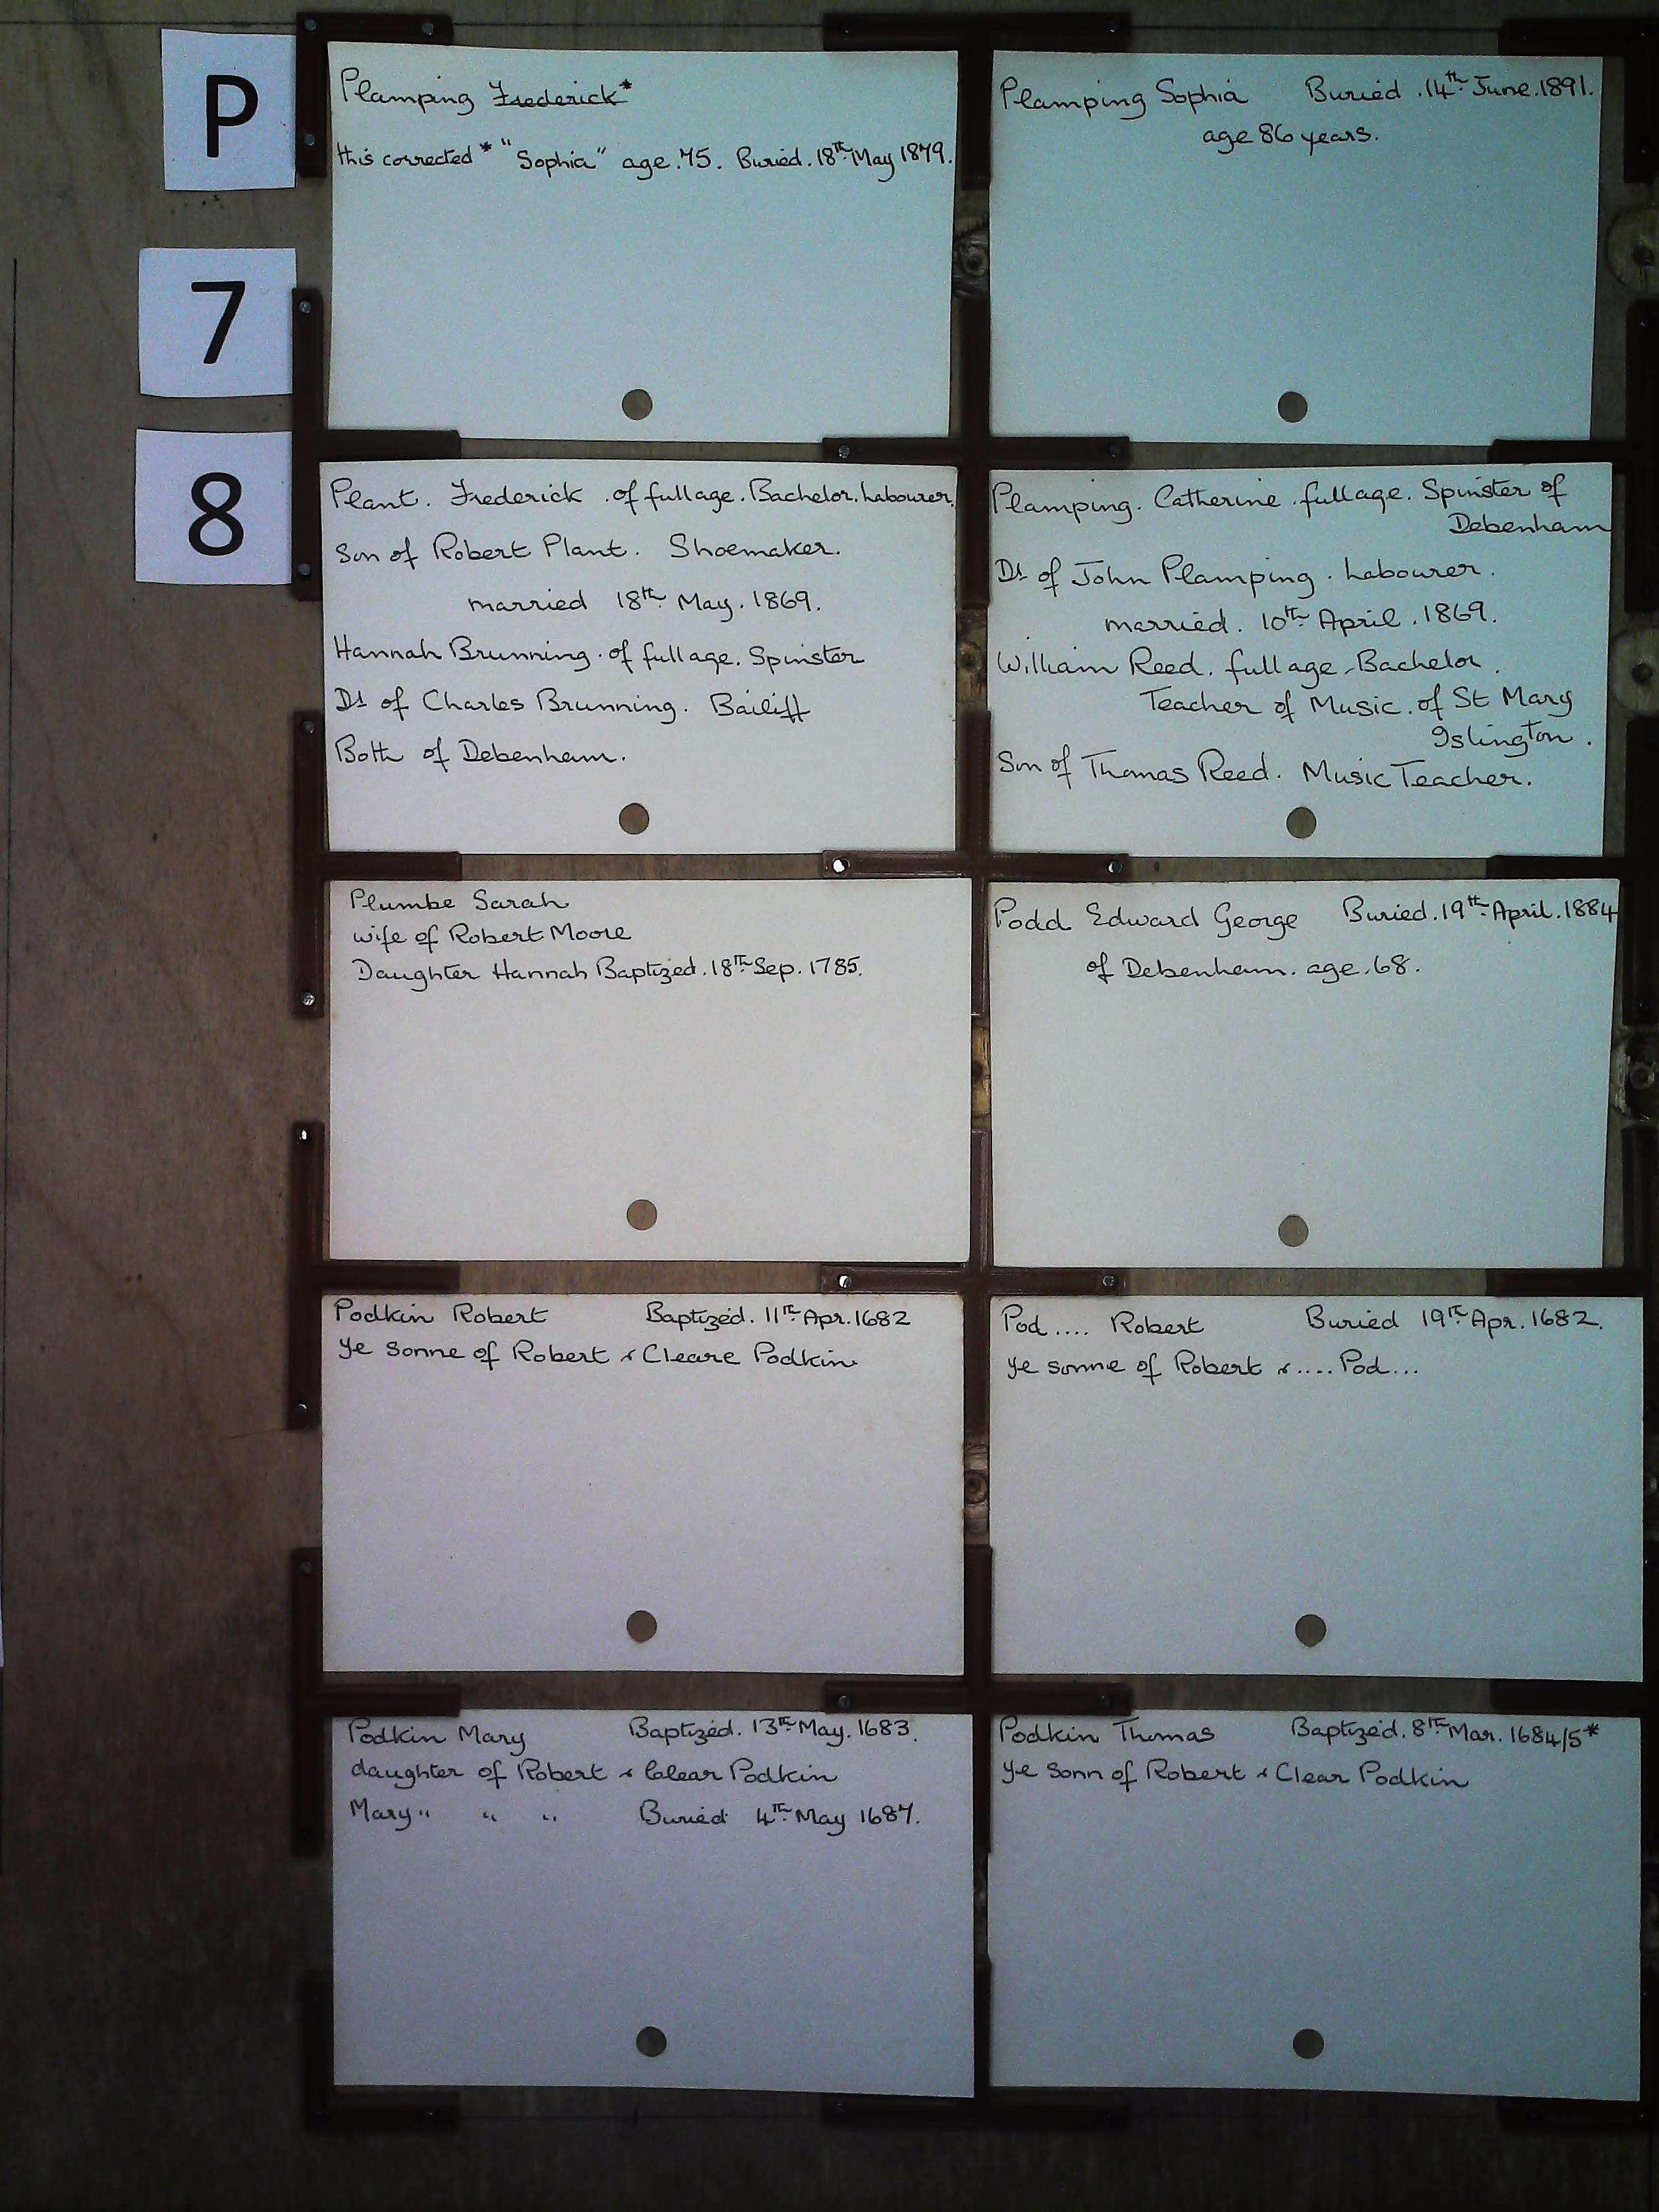 P
7
8
Plamping Frederick*
this corrected * "Sophia" age.75. Buried.18th May 1879.
Plamping Sophia Buried.14th June.1891.
age 86 years.
Plant. Frederick. of full age. Bachelor. Labourer.
Son of Robert Plant. Shoemaker.
married 18th May. 1869.
Hannah Brunning. of full age. Spinster
Dt of Charles Brunning. Bailiff
Both of Debenham.
Plamping. Catherine. full age. Spinster of
Debenham
Dt of John Plamping. Labourer.
married. 10th April. 1869.
William Reed. full age. Bachelor.
Teacher of Music. of St Mary
Islington.
Son of Thomas Reed. Music Teacher.
Plumbe Sarah
wife of Robert Moore
Daughter Hannah Baptized. 18th Sep. 1785.
Podd Edward George Buried. 19th April. 1884
of Debenham. age. 68.
Podkin Robert Baptized. 11th Apr. 1682
ye Sonne of Robert & Cleare Podkin
Pod.... Robert Buried 19th Apr. 1682.
ye sonne of Robert &.... Pod...
Podkin Mary Baptized. 13th May. 1683.
daughter of Robert & Clear Podkin
Mary " " " Buried 4th May 1687.
Podkin Thomas Baptized. 8th Mar. 1684/5*
ye Sonn of Robert & Clear Podkin